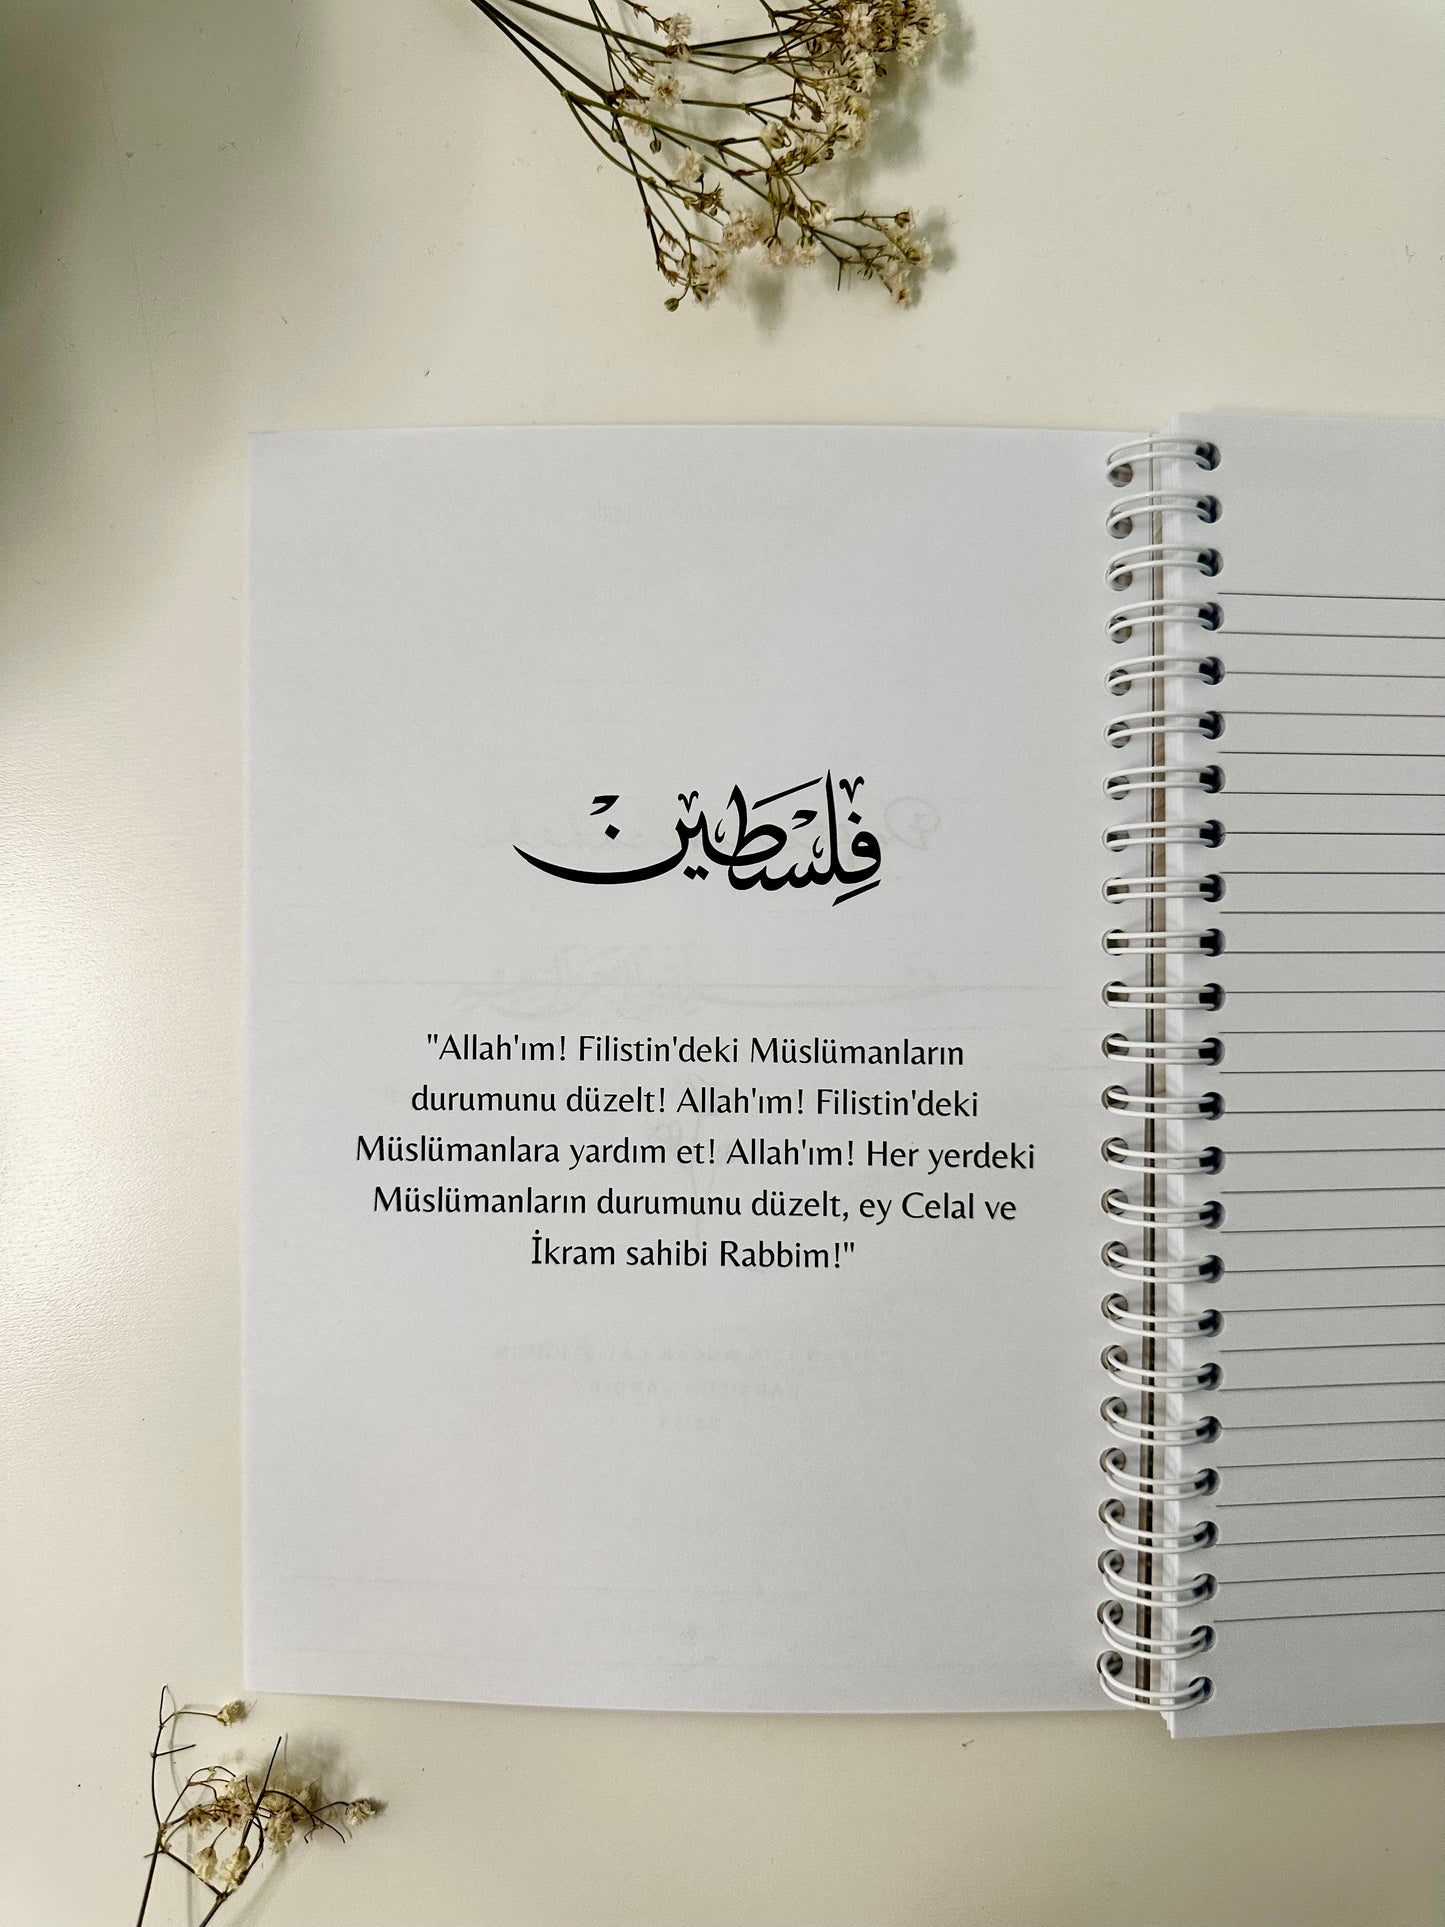 فِلسطين
"Allah'ım! Filistin'deki Müslümanların
durumunu düzelt! Allah'ım! Filistin'deki
Müslümanlara yardım et! Allah'ım! Her yerdeki
Müslümanların durumunu düzelt, ey Celal ve
İkram sahibi Rabbim!"